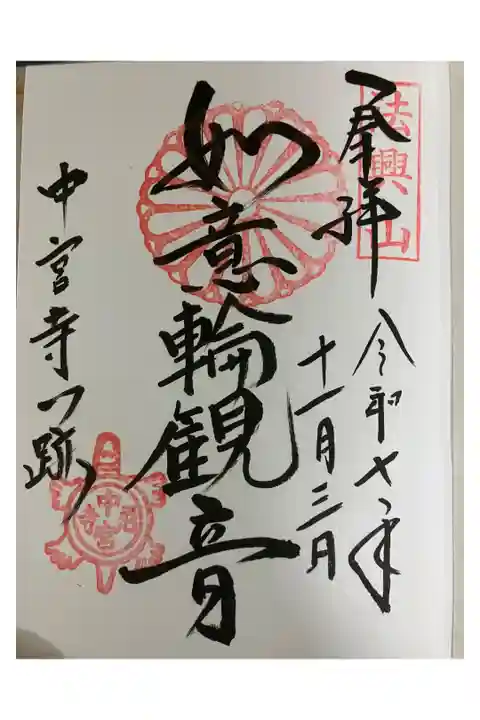 法興山
奉拝
令和七年
十一月三日
如意輪観音
中宮寺門跡
中宮尼寺